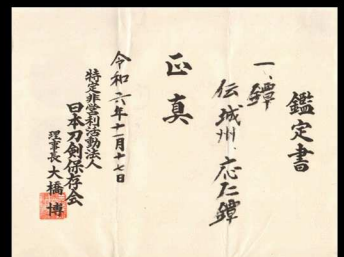 鑑定書
一、鐔
伝城州・応仁鐔
正真
令和六年十一月十七日
特定非営利活動法人
日本刀剣保存会
理事長 大橋 博